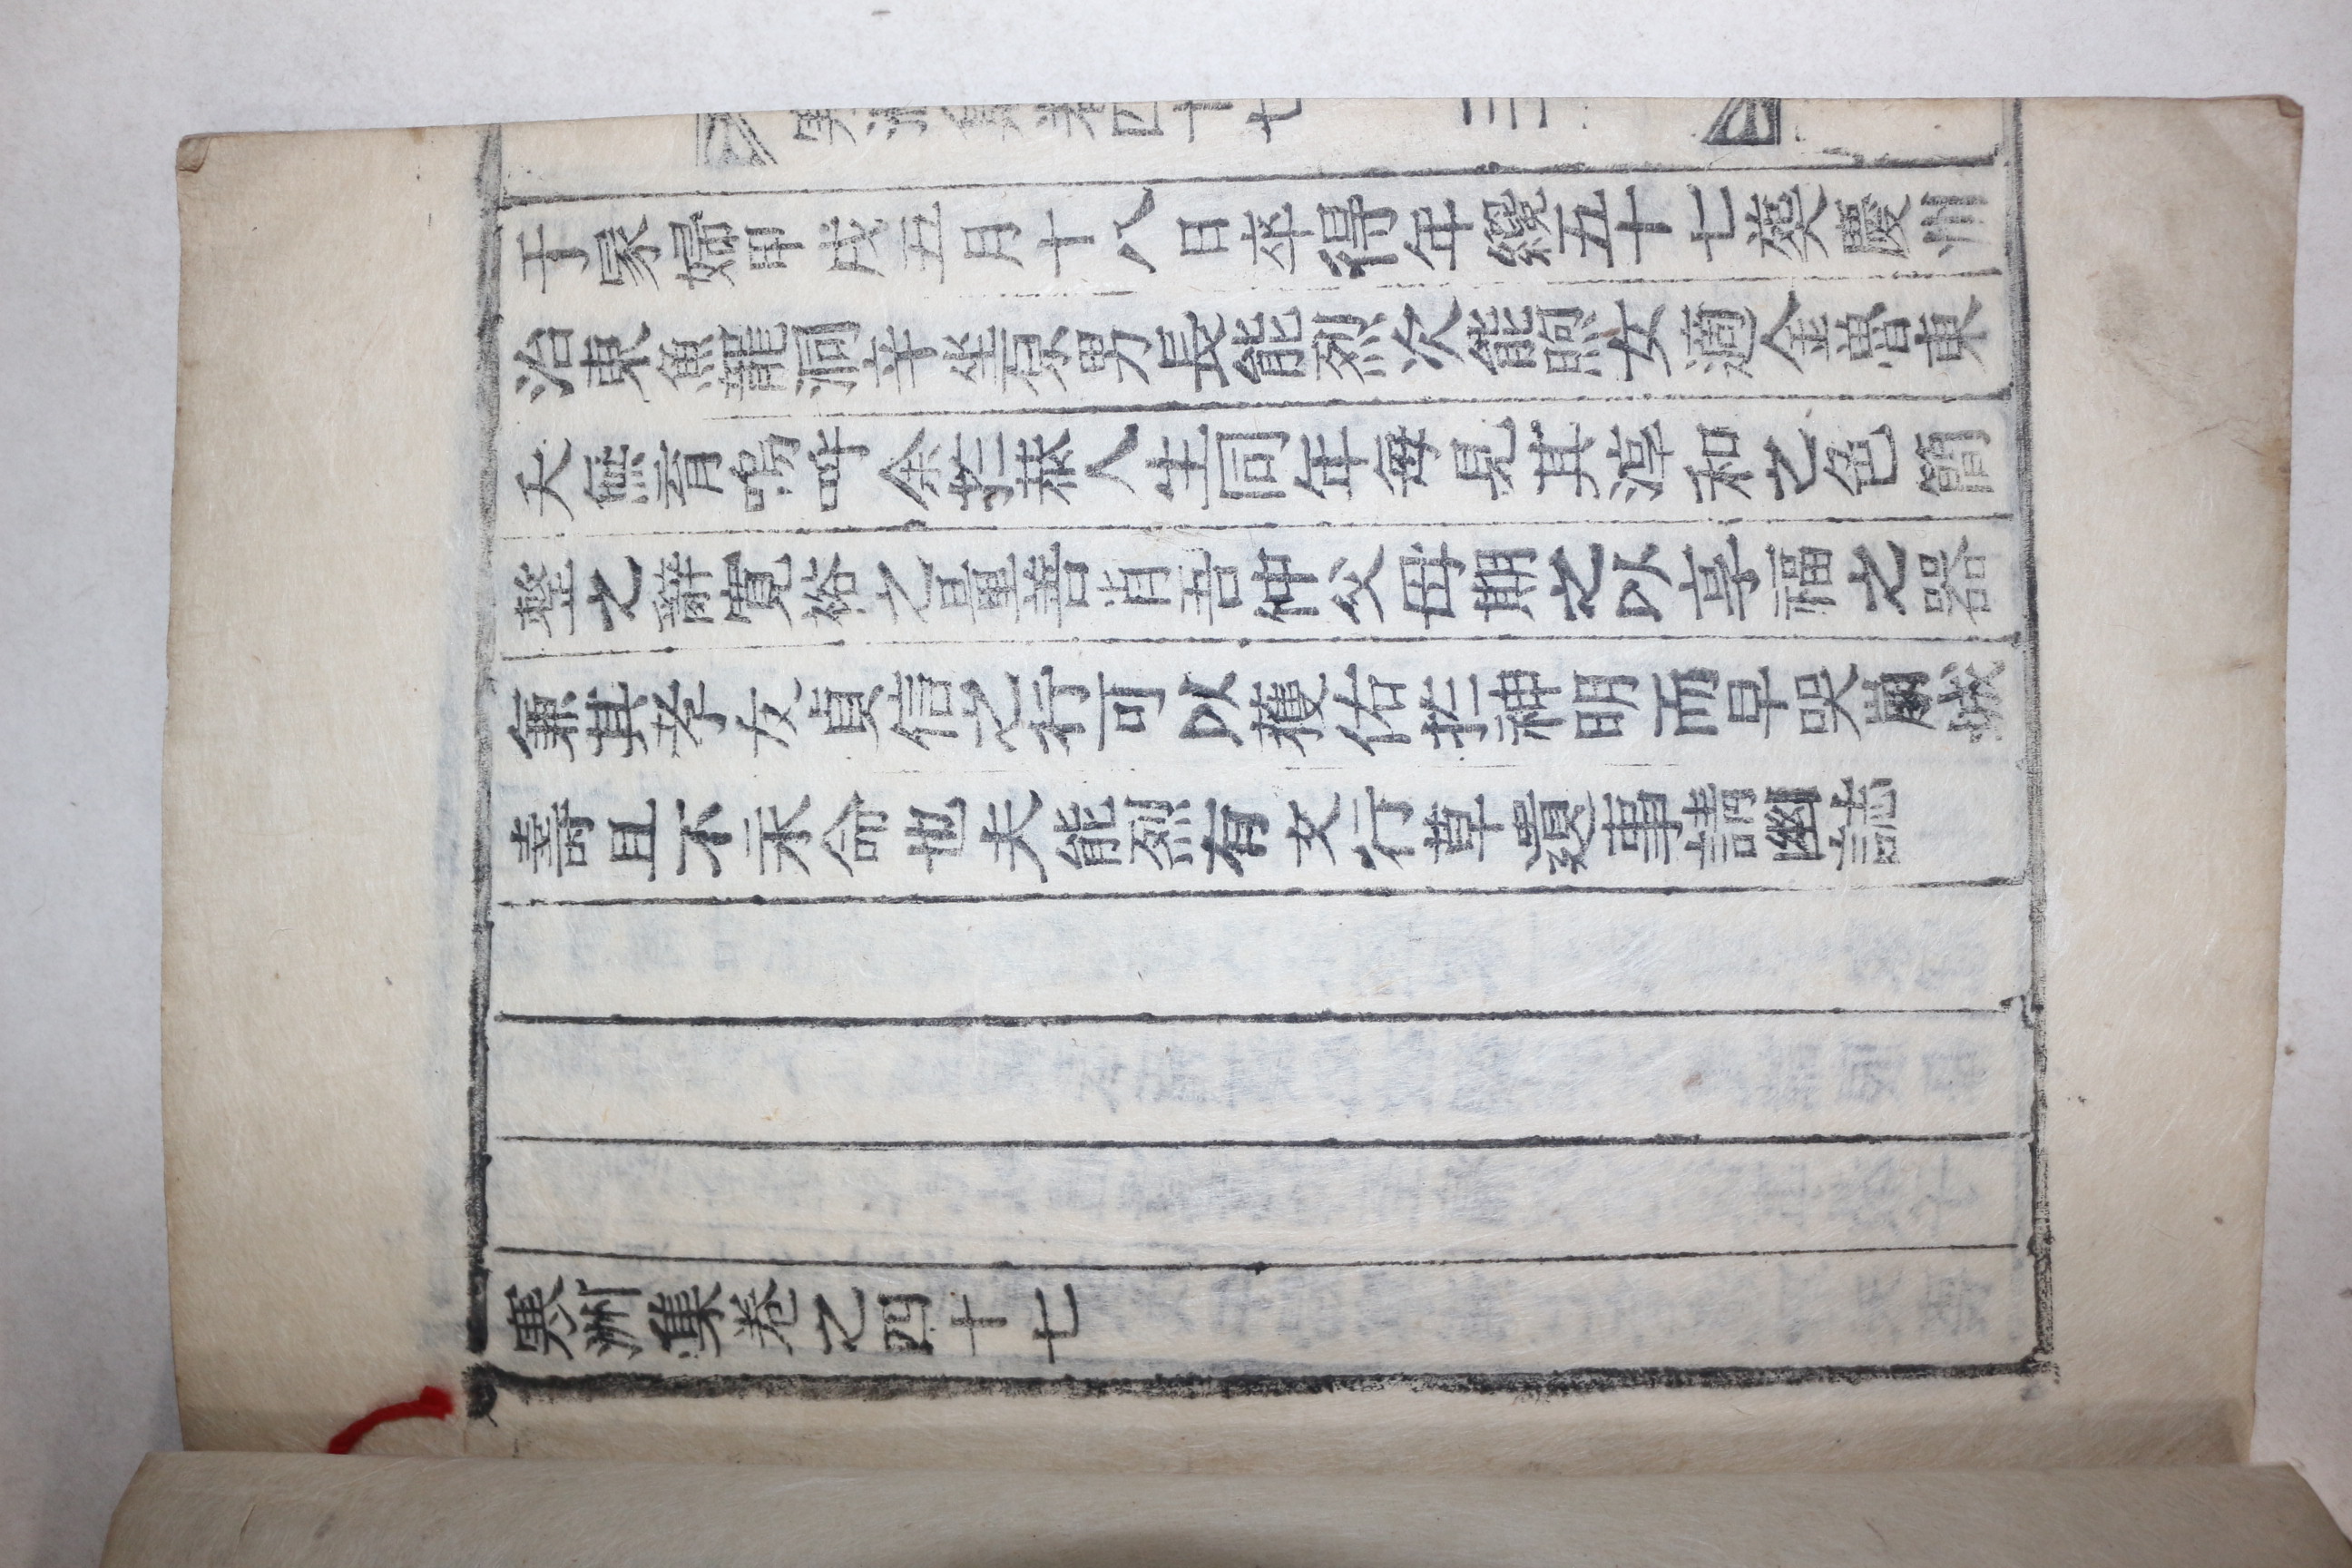 寒洲集卷四十七
于家婦甲戌五月十八日卒得年纔五十七葬慶州
治東魚龍洞辛坐原男長能烈次能煕女適金晋東
夭無育嗚呼余於恭人生同年每見其淳和之色簡
整之辭寬裕之量善肯吉仲父母期之以享福之器
兼其孝友貞信之行可以獲佑於神明而早哭崩城
壽且不永命也夫能烈有文行草實事請幽誌
寒洲集卷之四十七